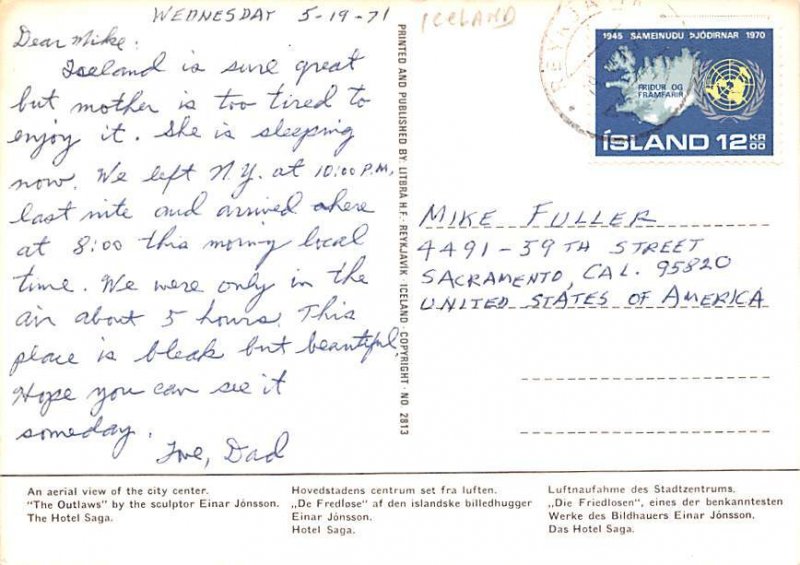 WEDNESDAY 5-19-71
Dear Mike:
Iceland is sure great
but mother is too tired to
enjoy it. She is sleeping
now. We left N.Y. at 10:00 P.M.
last nite and arrived here
at 8:00 this morning local
time. We were only in the
air about 5 hours. This
place is bleak but beautiful.
Hope you can see it
someday.
Love, Dad
PRINTED AND PUBLISHED BY: LITBRÁ H.F. · REYKJAVIK · ICELAND · COPYRIGHT · NO 2813
ICELAND
1945 SAMEINUDU ÞJÓDIRNAR 1970
FRIDUR OG
FRAMFARIR
ÍSLAND 12 KR 00
MIKE FULLER
4491-39TH STREET
SACRAMENTO, CAL. 95820
UNITED STATES OF AMERICA
An aerial view of the city center.
"The Outlaws" by the sculptor Einar Jónsson.
The Hotel Saga.
Hovedstadens centrum set fra luften.
„De Fredløse" af den islandske billedhugger
Einar Jónsson.
Hotel Saga.
Luftnaufahme des Stadtzentrums.
„Die Friedlosen", eines der benkanntesten
Werke des Bildhauers Einar Jónsson.
Das Hotel Saga.